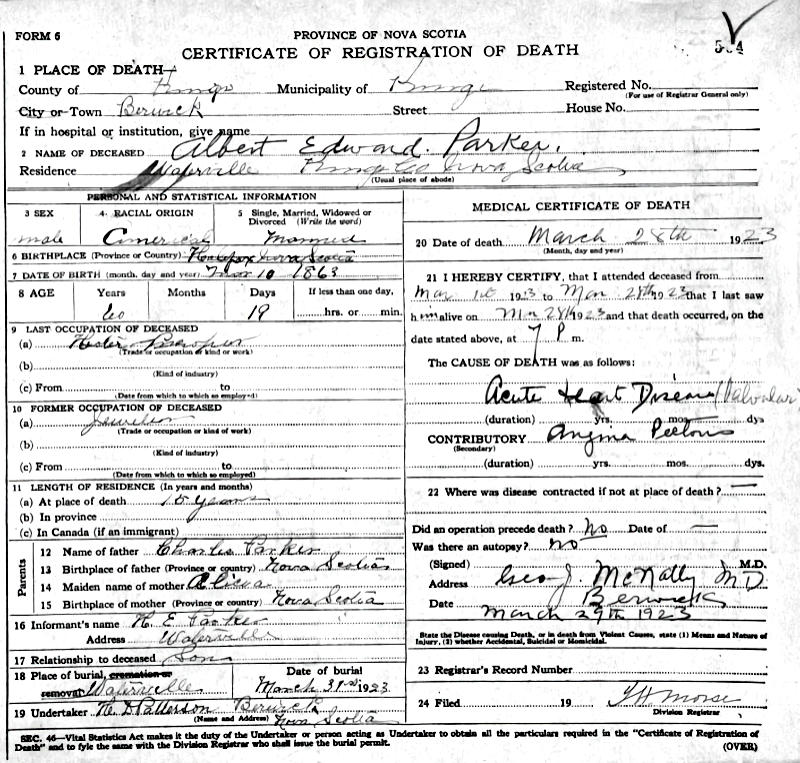 FORM 6
PROVINCE OF NOVA SCOTIA
CERTIFICATE OF REGISTRATION OF DEATH
1 PLACE OF DEATH—
County of Kings Municipality of Kings Registered No.
(For use of Registrar General only)
City or Town Berwick Street House No.
If in hospital or institution, give name
2 NAME OF DECEASED Albert Edward Parker.
Residence Waterville Kings Co Nova Scotia
(Usual place of abode)
PERSONAL AND STATISTICAL INFORMATION
3 SEX 4. RACIAL ORIGIN 5 Single, Married, Widowed or Divorced (Write the word)
male Married
6 BIRTHPLACE (Province or Country) Halifax Nova Scotia
7 DATE OF BIRTH (month, day and year) Mar 10 1863
8 AGE Years Months Days If less than one day,
60 19 hrs. or min.
9 LAST OCCUPATION OF DECEASED
(a)
(Trade or occupation or kind of work)
(b)
(Kind of industry)
(c) From to
(Date from which to which so employed)
10 FORMER OCCUPATION OF DECEASED
(a) Jeweller
(Trade or occupation or kind of work)
(b)
(Kind of industry)
(c) From to
(Date from which to which so employed)
11 LENGTH OF RESIDENCE (In years and months)
(a) At place of death 15 years
(b) In province
(c) In Canada (if an immigrant)
Parents
12 Name of father Charles Parker
13 Birthplace of father (Province or country) Nova Scotia
14 Maiden name of mother
15 Birthplace of mother (Province or country) Nova Scotia
16 Informant's name H. E Parker
Address Waterville
17 Relationship to deceased Son
18 Place of burial, cremation or removal Waterville Date of burial March 31st 1923
19 Undertaker Patterson Berwick
(Name and Address) Nova Scotia
MEDICAL CERTIFICATE OF DEATH
20 Date of death March 28th 1923
(Month, day and year)
21 I HEREBY CERTIFY, that I attended deceased from
Mar 1st 1923 to Mar 28th 1923 that I last saw
him alive on Mar 28th 1923 and that death occurred, on the
date stated above, at 7 P. m.
The CAUSE OF DEATH was as follows:
Acute Heart Disease (Valvular)
(duration) yrs. mos. dys
CONTRIBUTORY Angina Pectoris
(Secondary)
(duration) yrs. mos. dys.
22 Where was disease contracted if not at place of death? —
Did an operation precede death? No Date of —
Was there an autopsy? no
(Signed) M.D.
Geo. J. McNally MD
Address Berwick
Date March 29th 1923
State the Disease causing Death, or in death from Violent Causes, state (1) Means and Nature of
Injury, (2) whether Accidental, Suicidal or Homicidal.
23 Registrar's Record Number
24 Filed 19 Morse
Division Registrar
SEC. 46—Vital Statistics Act makes it the duty of the Undertaker or person acting as Undertaker to obtain all the particulars required in the "Certificate of Registration of
Death" and to fyle the same with the Division Registrar who shall issue the burial permit. (OVER)